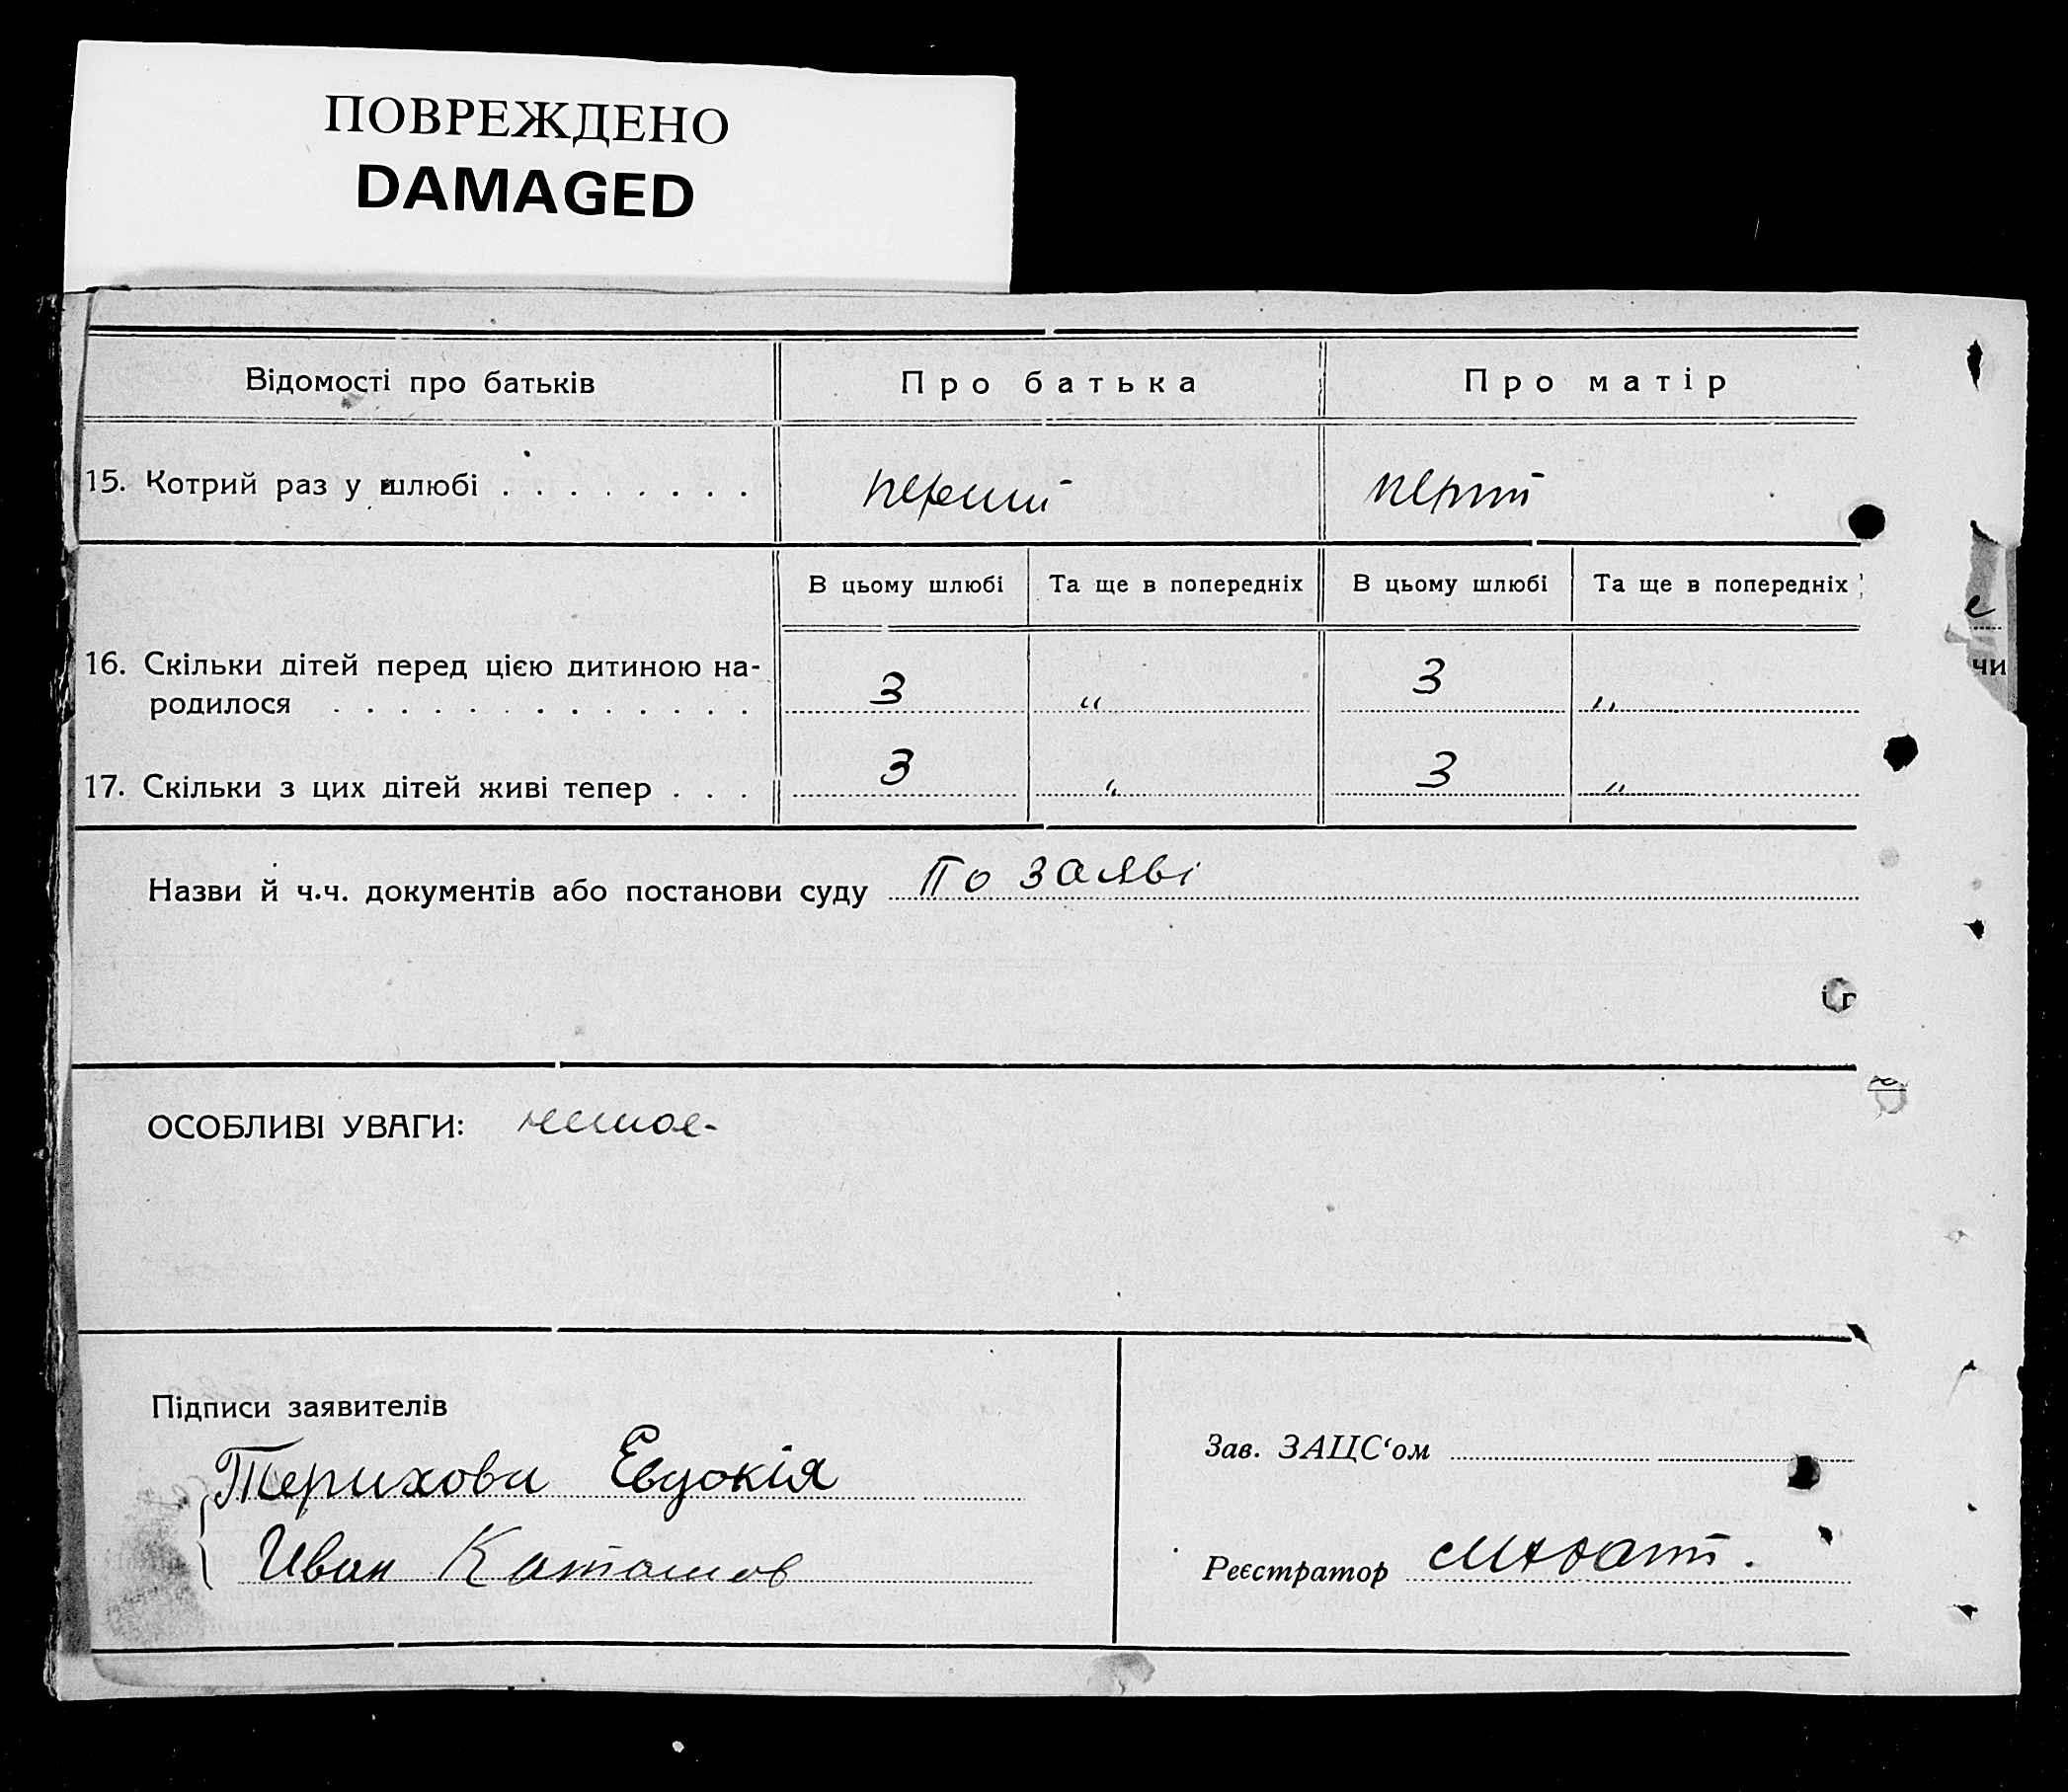 ПОВРЕЖДЕНО
DAMAGED
Відомості про батьків
Про батька
Про матір
15. Котрий раз у шлюбі . . . . . . . .
перший
перший
В цьому шлюбі
Та ще в попередніх
В цьому шлюбі
Та ще в попередніх
16. Скільки дітей перед цією дитиною на-
родилося . . . . . . . . . . . . .
3
"
3
"
17. Скільки з цих дітей живі тепер . . .
3
"
3
"
чи
Назви й ч.ч. документів або постанови суду По заяві
ОСОБЛИВІ УВАГИ: немає-
Підписи заявителів
Терихова Евдокія
Иван
Зав. ЗАЦС‘ом
Реєстратор